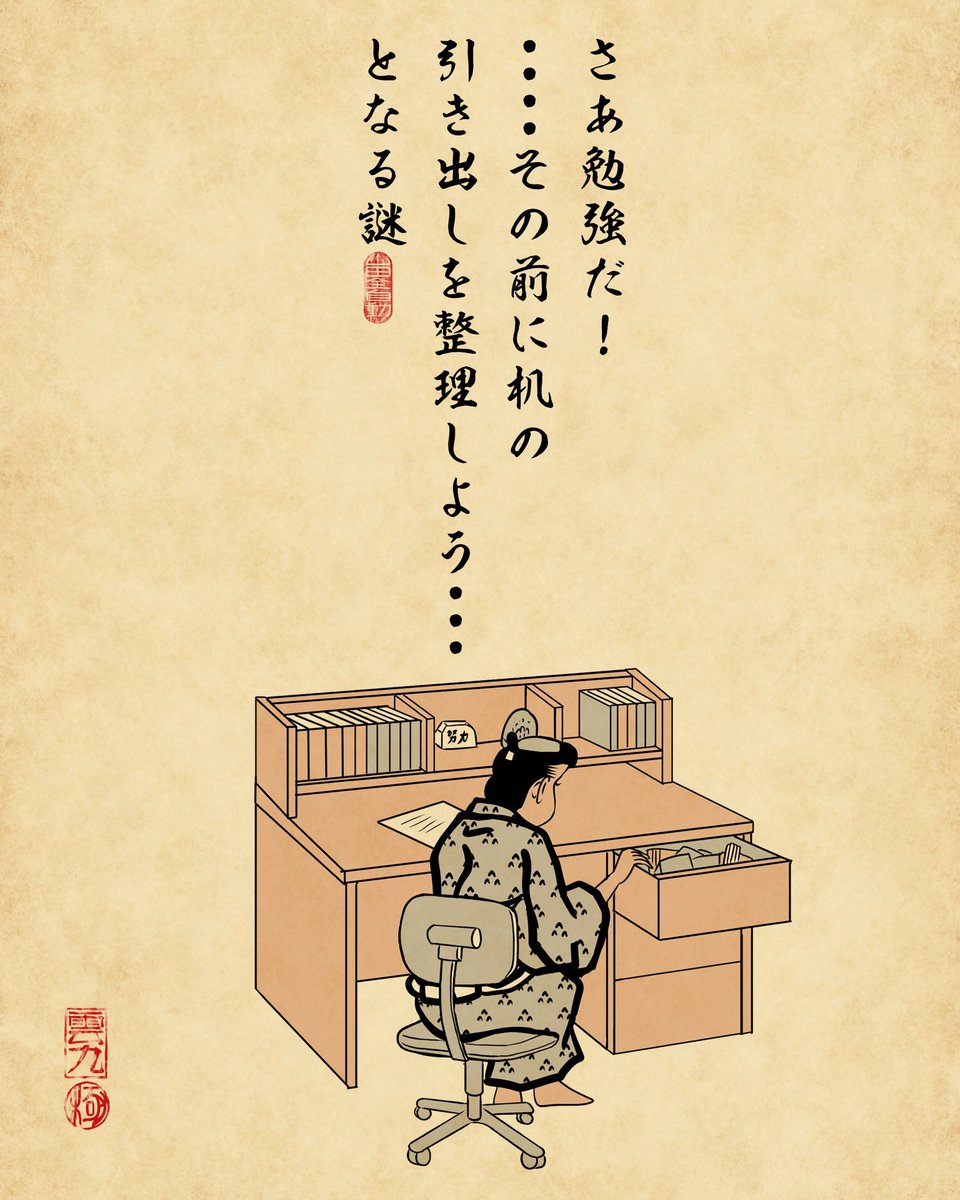 さあ勉強だ！
・・・・その前に机の
引き出しを整理しよう・・・
となる謎
努力